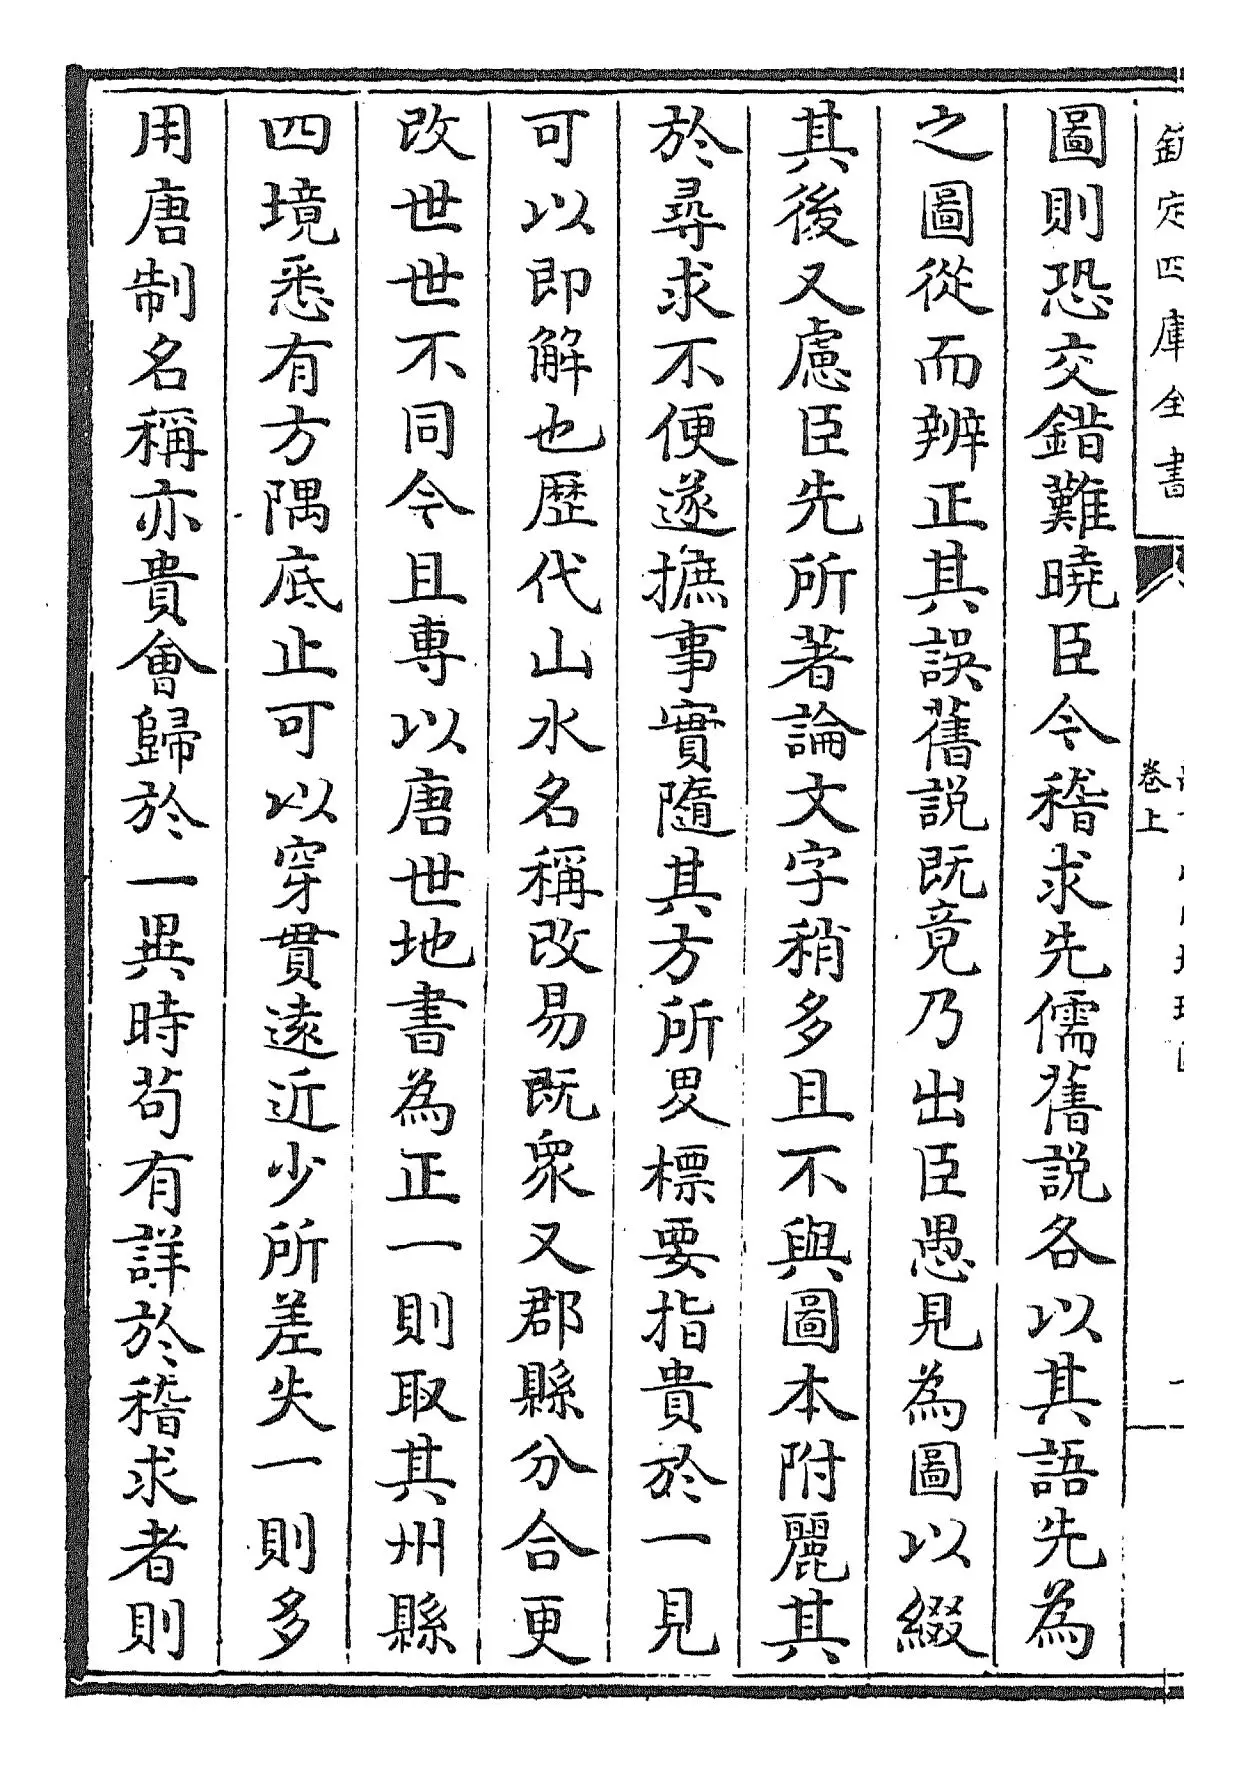 欽定四庫全書
卷上
圖則恐交錯難曉臣今稽求先儒舊説各以其語先為
之圖從而辨正其誤舊説既竟乃出臣愚見為圖以綴
其後又慮臣先所著論文字稍多且不與圖本附麗其
於尋求不便遂摭事實隨其方所畟標要指貴於一見
可以即解也歴代山水名稱改易既衆又郡縣分合更
改世世不同今且専以唐世地書為正一則取其州縣
四境悉有方隅底止可以穿貫逺近少所差失一則多
用唐制名稱亦貴會歸於一異時茍有詳於稽求者則